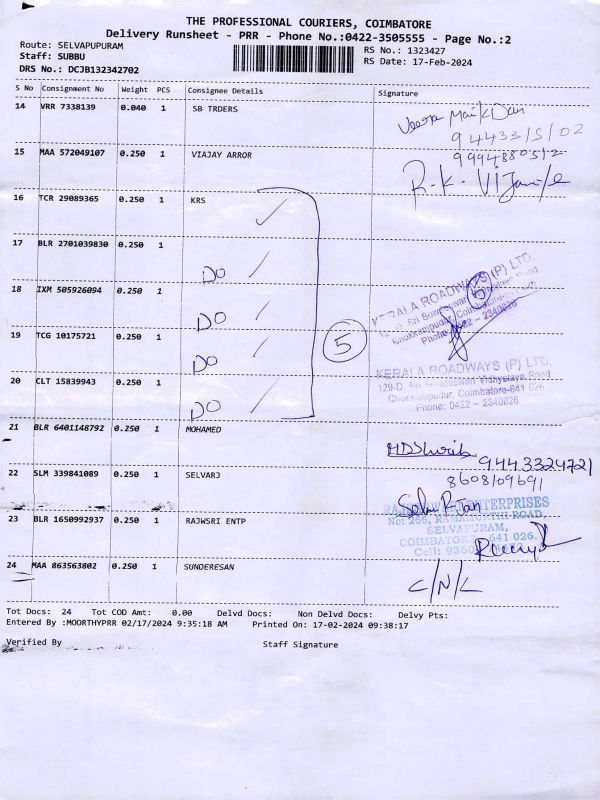 THE PROFESSIONAL COURIERS, COIMBATORE
Delivery Runsheet - PRR - Phone No.:0422-3505555 - Page No.:2
Route: SELVAPUPURAM
Staff: SUBBU
DRS No.: DCJB132342702
RS No.: 1323427
RS Date: 17-Feb-2024
S No Consignment No Weight PCS Consignee Details Signature
14 VRR 7338139 0.040 1 SB TRDERS
94433
15 MAA 572049107 0.250 1 VIAJAY ARROR
R.K.
16 TCR 29089365 0.250 1 KRS
17 BLR 2701039830 0.250 1
DO
18 IXM 505926094 0.250 1
DO
19 TCG 10175721 0.250 1
DO
20 CLT 15839943 0.250 1
DO
5
KERALA ROADWAYS (P) LTD.
Phone: 0422 - 2340026
KERALA ROADWAYS (P) LTD.
129-D, Sri Vidhyalaya Road
Coimbatore-641 026
Phone: 0422 - 2340026
21 BLR 6401148792 0.250 1 MOHAMED
9443324721
22 SLM 339841089 0.250 1 SELVARJ
8608109691
23 BLR 1650992937 0.250 1 RAJWSRI ENTP
ENTERPRISES
No: 266, RAMAMURTHI ROAD,
SELVAPURAM,
COIMBATORE - 641 026.
24 MAA 863563802 0.250 1 SUNDERESAN
C/N/L
Tot Docs: 24 Tot COD Amt: 0.00 Delvd Docs: Non Delvd Docs: Delvy Pts:
Entered By :MOORTHYPRR 02/17/2024 9:35:18 AM Printed On: 17-02-2024 09:38:17
Verified By Staff Signature